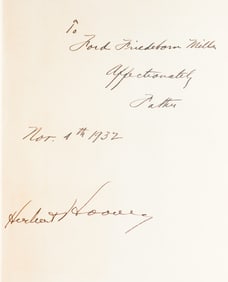 To
Ford Friedeborn Miller
Affectionately
Father
Nov. 4th 1932
Herbert Hoover